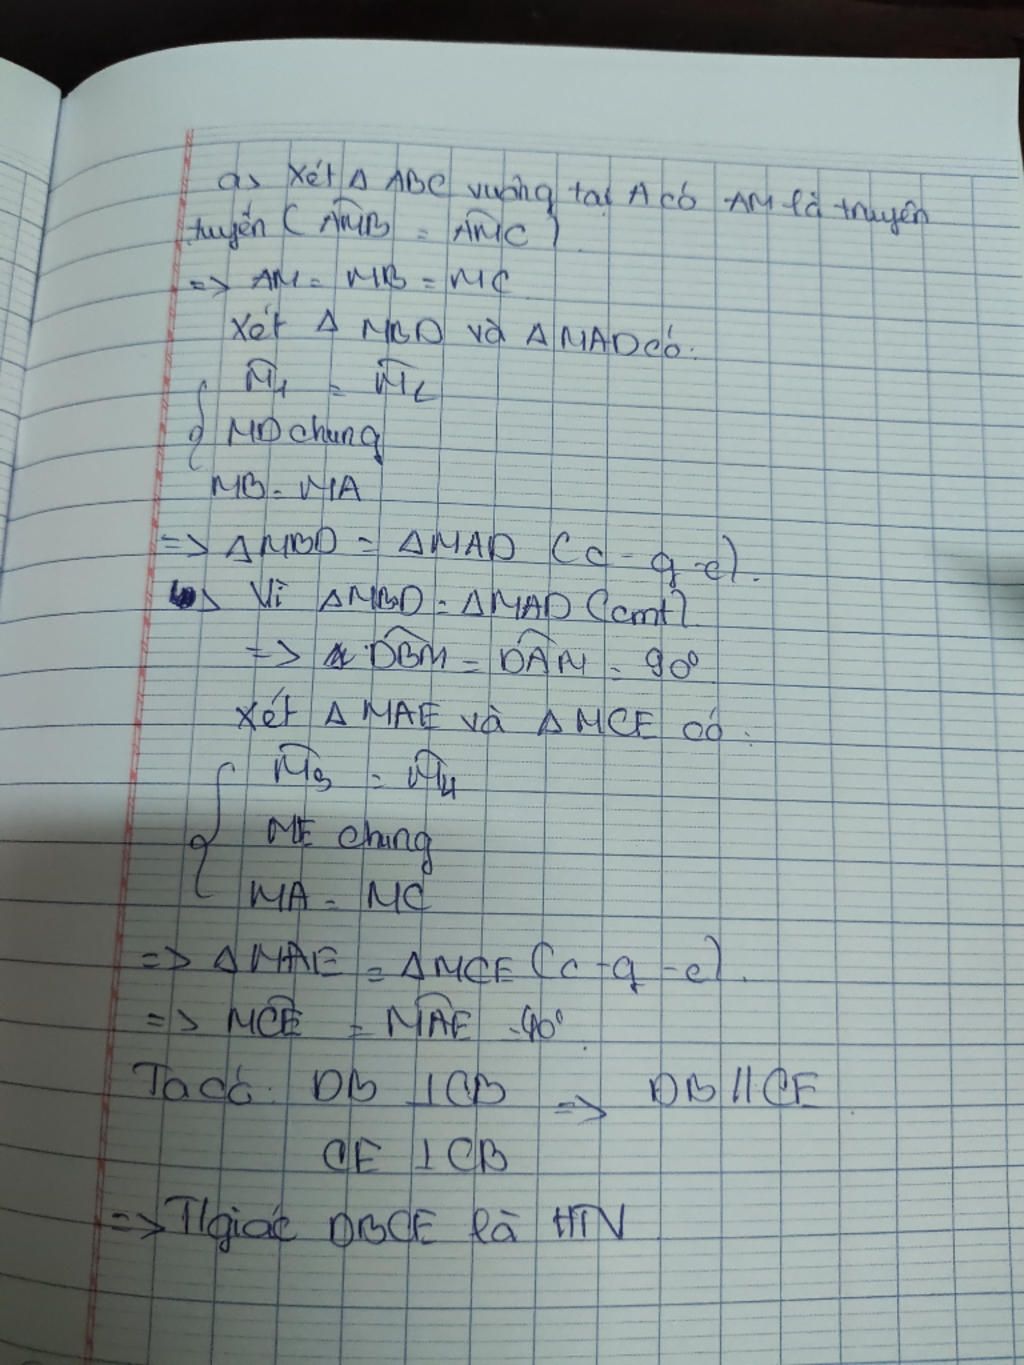 a, Xét Δ ABC vuông tại A có AM là truyên
tuyến ( AMB = AMC )
=> AM = MB = MC
Xét Δ MBD và Δ MAD có:
M1 = M2
MD chung
MB = MA
=> Δ MBD = Δ MAD (c - g - c).
b, Vì Δ MBD = Δ MAD (cmt)
=> DBM = DAM = 90°
Xét Δ MAE và Δ MCE có:
M3 = M4
ME chung
MA = MC
=> Δ MAE = Δ MCE (c - g - c).
=> MCE = MAE = 90°.
Ta có: DB ⊥ CB => DB // CE.
CE ⊥ CB
=> T/giác DBCE là HTV